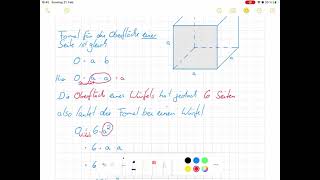 Formel für die Oberfläche einer
Seite ist gleich
O = a · b
Hier O = a · a = a
Die Oberfläche eines Würfels hat gesamt 6 Seiten
also lautet die Formel bei einem Würfel
O = 6 · a²
= 6 · a · a
= 6
a
a
a